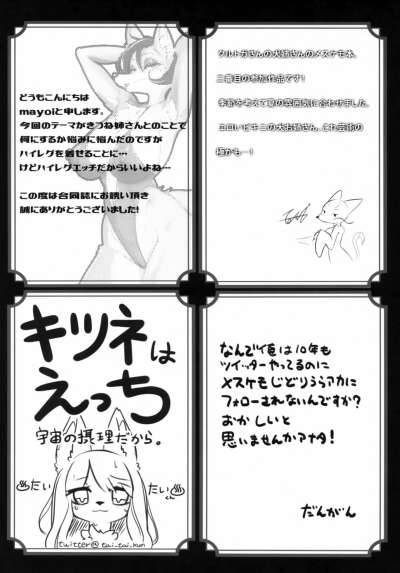 どうもこんにちは
mayoiと申します。
今回のテーマがきつね姉さんとのことで
何にするか悩みに悩んだのですが
ハイレグを着せることに…
けどハイレグエッチだからいいよね…
この度は合同誌にお誘い頂き
誠にありがとうございました!
クルトガさんの犬姉さんのメスケモ本、
二番目の参加作品です!
季節を考えて夏の雰囲気に合わせました。
エロいビキニの犬お姉さん、これ芸術の
極かも…!
キツネは
えっち
宇宙の摂理だから。
たい
たいくん
twitter@tai_tai_kun
なんで俺は10年も
ツイッターやってるのに
メスケモじどりうらアカに
フォローされないんですか?
おかしいと
思いませんかアナタ!
だんがん